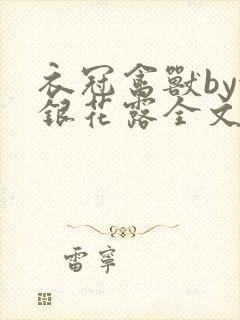 衣冠禽獸by
銀花露全文
雷寧